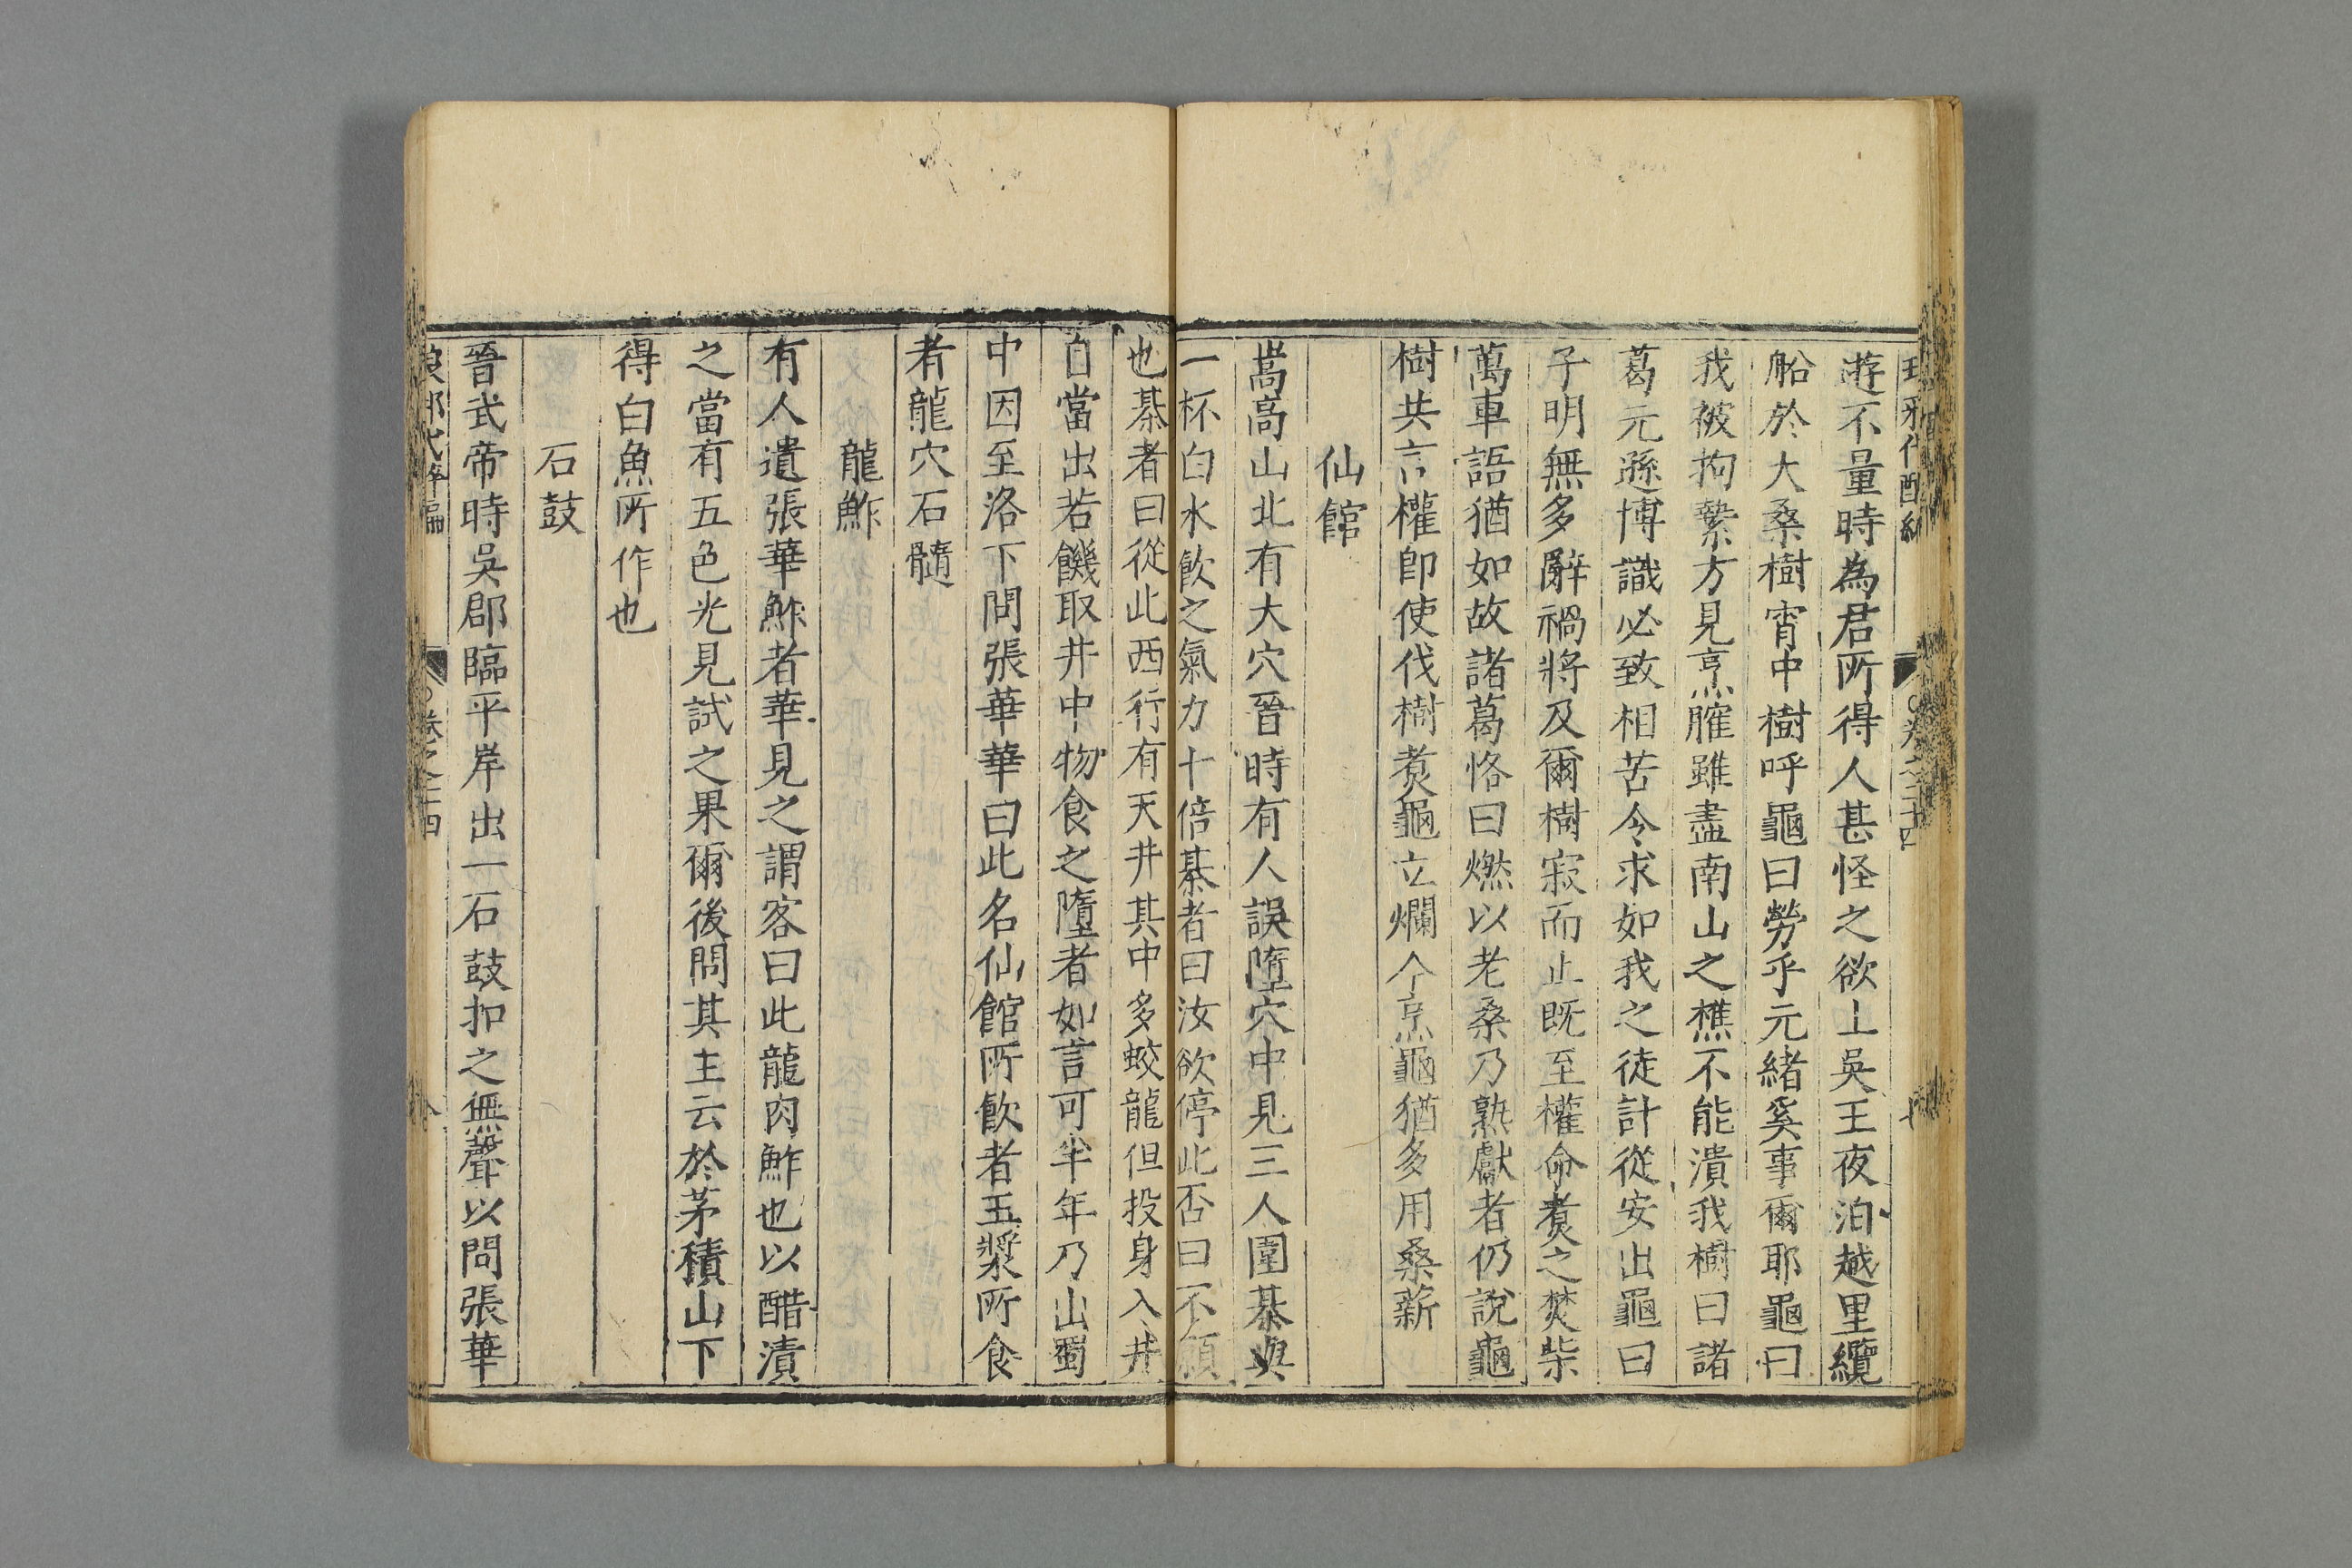 游不量時為君所得人甚怪之欲上吳王夜泊越里纜
船於大桑樹宵中樹呼龜曰勞乎元緒奚事爾耶龜曰
我被拘縶方見烹臛雖盡南山之樵不能潰我樹曰諸
葛元遜博識必致相苦令求如我之徒計從安出龜曰
子明無多辭禍將及爾樹寂而止既至權命煑之焚柴
萬車語猶如故諸葛恪曰燃以老桑乃熟獻者仍說龜
樹共言權即使伐樹煑龜立爛今烹龜猶多用桑薪
仙館
嵩高山北有大穴晉時有人誤墮穴中見三人圍碁與
一杯白水飲之氣力十倍碁者曰汝欲停此否曰不願
也碁者曰從此西行有天井其中多蛟龍但投身入井
自當出若饑取井中物食之墮者如言可半年乃出蜀
中因至洛下問張華華曰此名仙館所飲者玉漿所食
者龍穴石髓
龍鮓
有人遺張華鮓者華見之謂客曰此龍肉鮓也以醋漬
之當有五色光見試之果爾後問其主云於茅積山下
得白魚所作也
石鼓
晉武帝時吳郡臨平岸出一石鼓扣之無聲以問張華
琅邪代醉編 卷之三十四 八